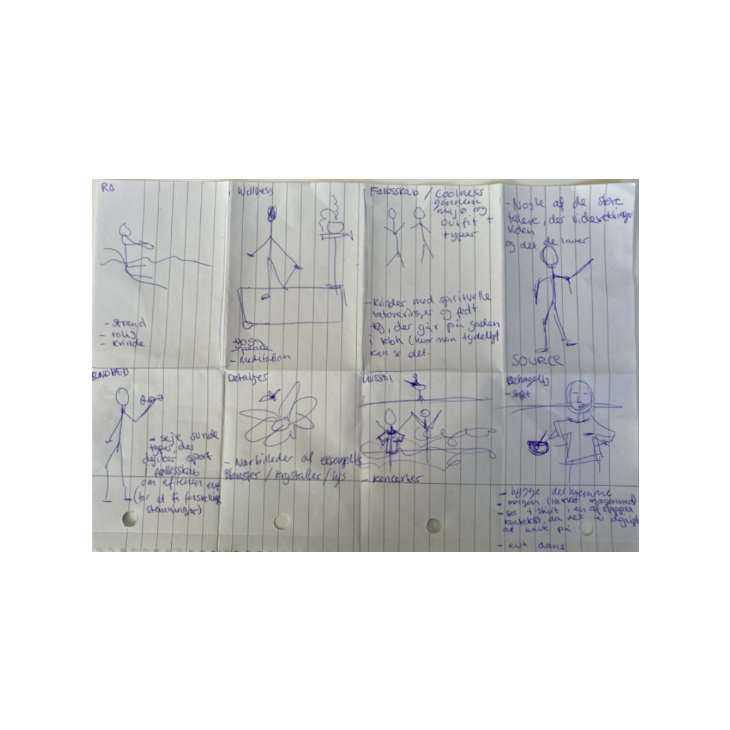 RO
- strand
- rolig
- kvinde
Wellness
- yoga
- Meditation
Fællesskab / Coolness
gennem
miljø og
outfit +
typer
- Kvinder med spirituelle
tatoveringer og fedt
tøj, der går på gaden
i kbh (hvor man tydeligt
kan se det.
- Nogle af de store
talere, der videre
viden
og det de laver
SOURCE
SUNDHED
- seje sunde
typer der
dyrker sport
i fællesskab
om aftenen evt
(for at få forskellige
stemninger)
Detaljer
- Nærbilleder af eksempelvis
Blomster / krystaller / lys
MUSIK
koncerter
Behagelig
- soft
- hygge derhjemme
- morgen (lækker morgenmad)
- ses t-shirt i en afslappet
kontekst, da det er dejligt
at have på
- evt dans